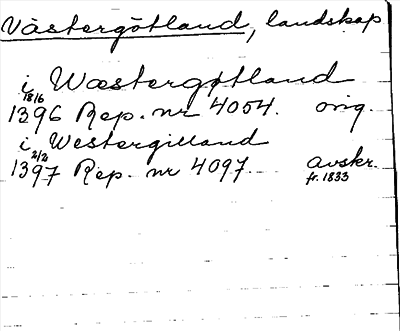 Västergötland, landskap
i Wæstergøtland
1396 18/6 Rep. nr 4054. orig.
i Westergilland
1397 2/2 Rep. nr 4097. avskr. fr. 1833